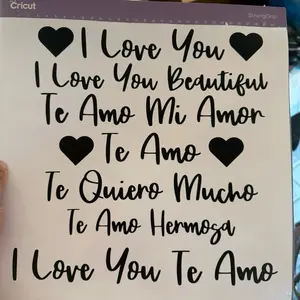 Cricut
StrongGrip
I Love You
I Love You Beautiful
Te Amo Mi Amor
Te Amo
Te Quiero Mucho
Te Amo Hermosa
I Love You Te Amo